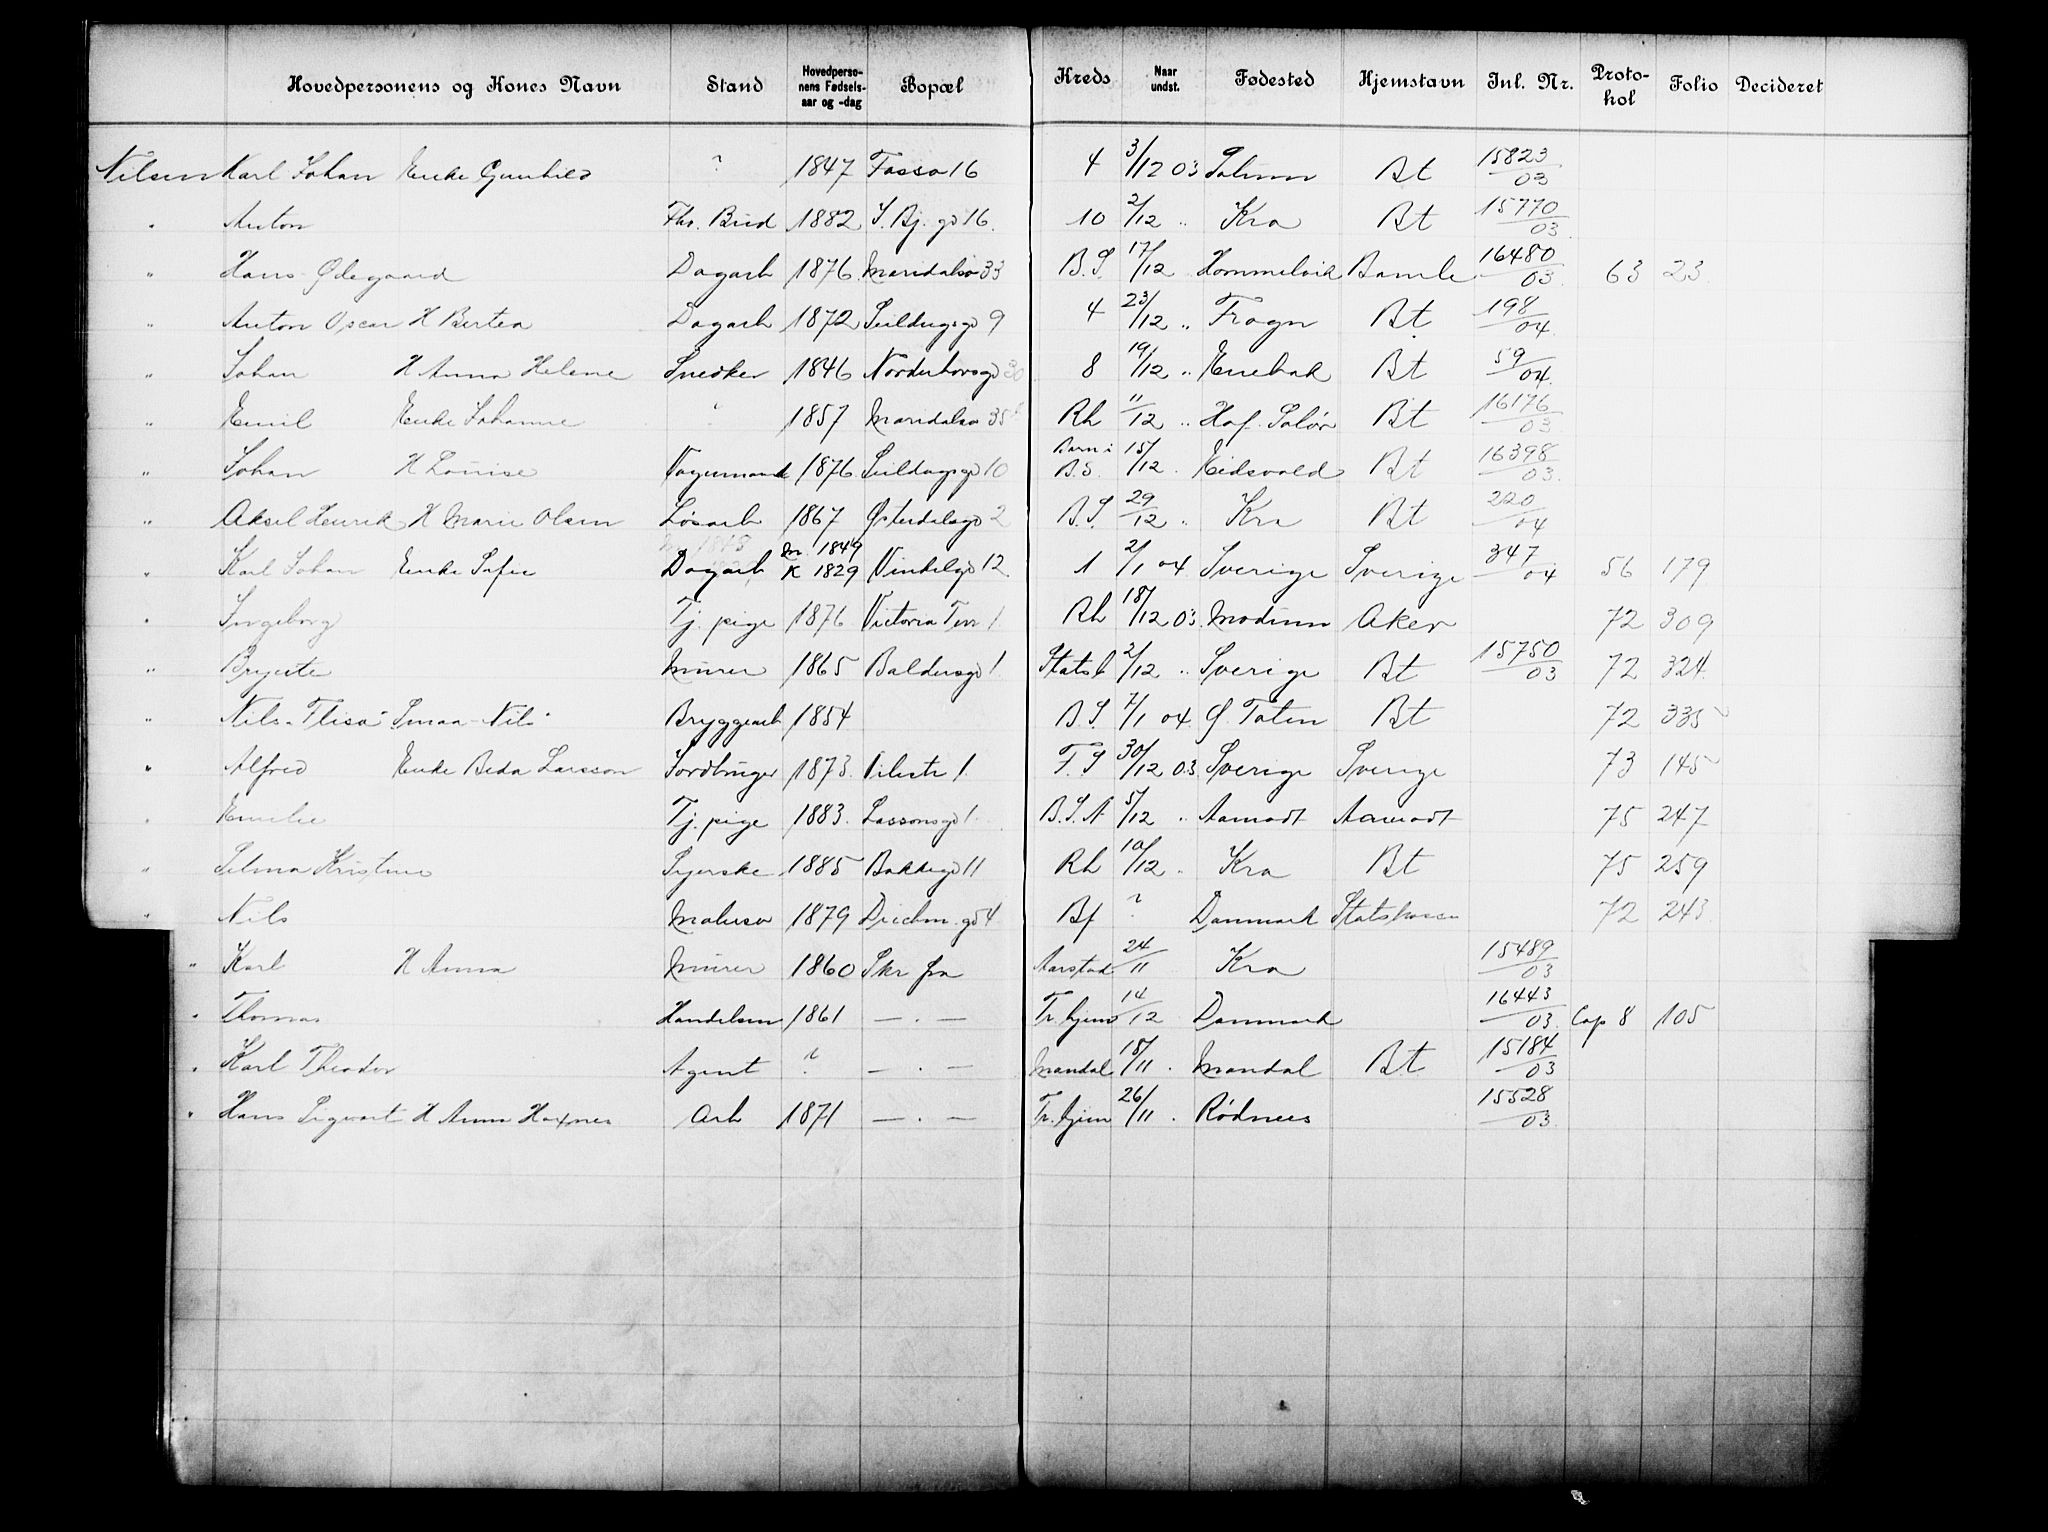 Hovedpersonens og Kones Navn Stand Hovedperso-nens Fødsels-aar og -dag Bopæl Kreds Naar undst. Fødested Hjemstavn Inl. Nr. Proto-kol Folio Decideret
Nilsen Karl Johan Enke Gunhild " 1847 Fossv 16 4 3/12 03 Bt 15823/03
" Anton Thr. Bud 1882 S. Bj. gd 16. 10 2/12 " Kra Bt 15770/03
" Hans Ødegaard Dagarb 1876 Maridalsv 33 B.S 17/12 Hommelvik Bamle 16480/03 63 23
" Anton Oscar H Bertea Dagarb 1872 Seildugsgd 9 4 23/12 " Frogn Bt 198/04
" Johan H Anna Helene Snedker 1846 Norderhovsgd 30 8 19/12 " Enebak Bt 59/04
" Emil Enke Johanne " 1857 Maridalsv 35 Rh 11/12 " Hof. Solør Bt 16176/03
" Johan H Louise Vognmand 1876 Seildugsgd 10 Barn i B.S. 15/12 " Eidsvold Bt 16398/03
" Aksel Henrik H Marie Olsen Løsarb 1867 Østerdalsgd 2 B.S 29/12 " Kra Bt 220/04
" Karl Johan Enke Sofie Dagarb M. 1849 K 1829 Vinkelgd 12 1 2/1 04 Sverige Sverige 347/04 56 179
" Ingeborg Tj. pige 1876 Victoria Terr 1 Rh 18/12 03 Modum Aker 72 309
" Murer 1865 Baldersgd 1 2/12 " Sverige Bt 15750/03 72 324
" Nils "Flisa" Smaa-Nils Bryggearb 1854 B.S 7/1 04 Ø. Toten Bt 72 335
" Alfred Enke Beda Larsson Jordbruger 1873 1 F.S 30/12 03 Sverige Sverige 73 145
" Emilie Tj. pige 1883 Lassonsgd 1 B.S.A 5/12 " Aamodt Aamodt 75 247
" Selma Kristine Syerske 1885 Bakkegd 11 Rh 10/12 " Kra Bt 75 259
" Nils Malersv 1879 Diechm. gd 4 Bf ? Danmark Statskassen 72 243
" Karl H Anna Murer 1860 Skr fra Aarstad 24/11 Kra 15489/03
" Thomas Handelsm 1861 — . — Tr.hjem 14/12 Danmark 16443/03 Cop 8 105
" Karl Theodor Agent ? — . — Mandal 18/11 Mandal Bt 15184/03
" Hans Sigvart H Anna Arb 1871 — . — Tr.hjem 26/11 Rødnes 15528/03